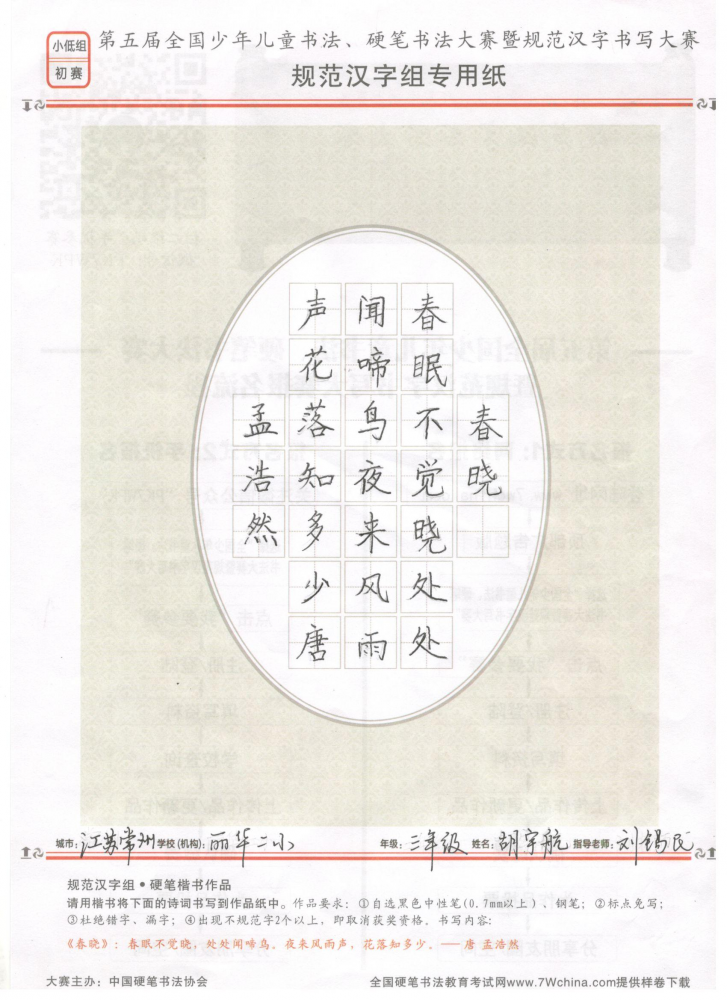 小低组
初赛
第五届全国少年儿童书法、硬笔书法大赛暨规范汉字书写大赛
规范汉字组专用纸
春晓
春眠不觉晓处处
闻啼鸟夜来风雨
声花落知多少唐
孟浩然
城市：江苏常州 学校(机构)：丽华二小 年级：三年级 姓名：胡宇航 指导老师：刘锡民
规范汉字组•硬笔楷书作品
请用楷书将下面的诗词书写到作品纸中。作品要求：①自选黑色中性笔(0.7mm以上)、钢笔；②标点免写；
③杜绝错字、漏字；④出现不规范字2个以上，即取消获奖资格。书写内容：
《春晓》：春眠不觉晓，处处闻啼鸟。夜来风雨声，花落知多少。——唐 孟浩然
大赛主办：中国硬笔书法协会 全国硬笔书法教育考试网www.7Wchina.com提供样卷下载